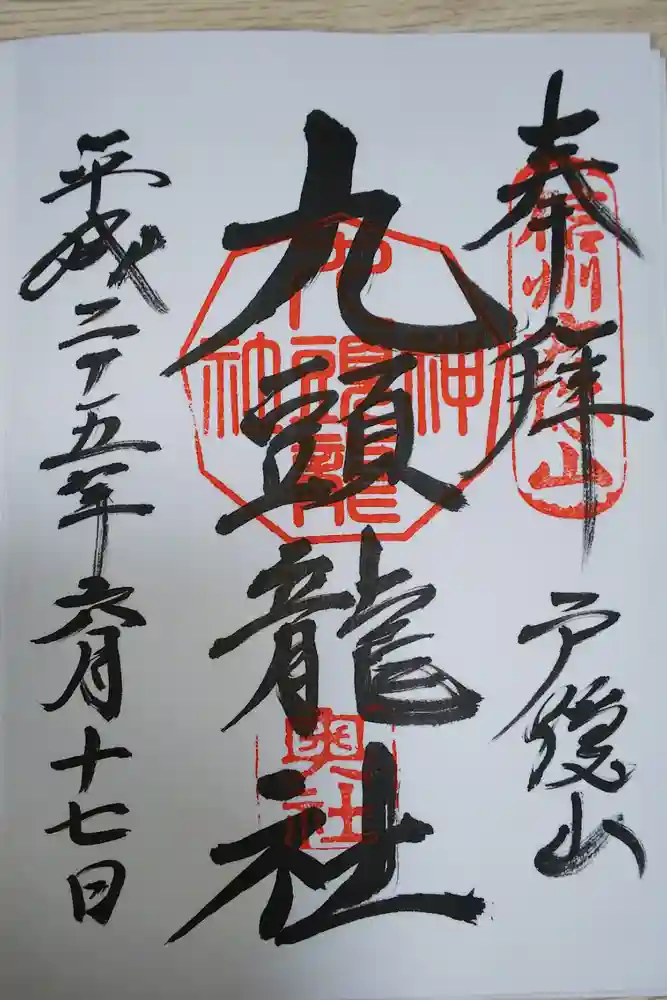 奉拝
戸隠山
信州戸隠山
九頭龍社
奥社
平成二十五年六月十七日